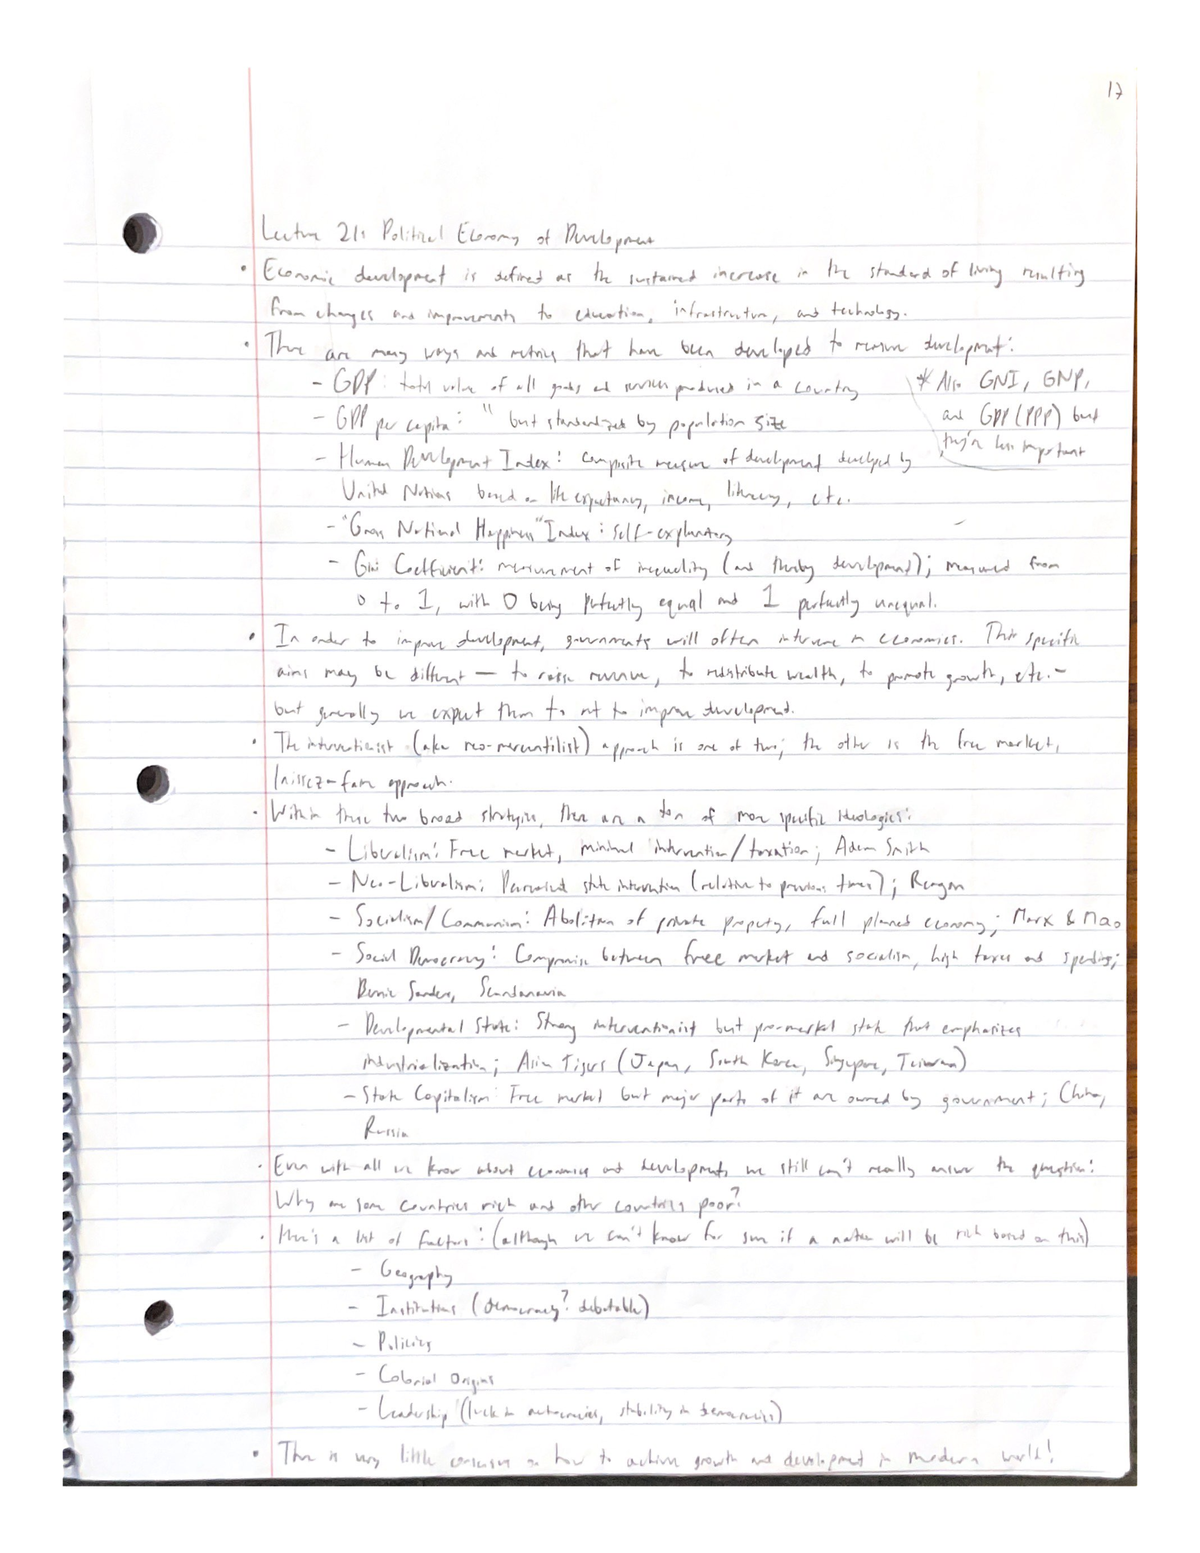 17
Lecture 21: Political Economy of Development
• Economic development is defined as the sustained increase in the standard of living resulting
from changes and improvements to education, infrastructure, and technology.
• There are many ways and metrics that have been developed to measure development:
- GDP: total value of all goods and services produced in a country
* Also GNI, GNP,
and GDP (PPP) but
they're less important
- GDP per capita: " but standardized by population size
- Human Development Index: composite measure of development developed by
United Nations based on life expectancy, income, literacy, etc.
- "Gross National Happiness" Index: self-explanatory
- Gini Coefficient: measurement of inequality (and thereby development); measured from
0 to 1, with 0 being perfectly equal and 1 perfectly unequal.
• In order to improve development, governments will often intervene in economies. Their specific
aims may be different — to raise revenue, to redistribute wealth, to promote growth, etc. -
but generally we expect them to act to improve development.
• The interventionist (aka neo-mercantilist) approach is one of two; the other is the free market,
laissez-faire approach.
• Within these two broad strategies, there are a ton of more specific ideologies:
- Liberalism: Free market, minimal intervention/taxation; Adam Smith
- Neo-Liberalism: Decreased state intervention (relative to previous times); Reagan
- Socialism/Communism: Abolition of private property, full planned economy; Marx & Mao
- Social Democracy: Compromise between free market and socialism, high taxes and spending;
Bernie Sanders, Scandanavia
- Developmental State: Strong interventionist but pro-market state that emphasizes
industrialization; Asian Tigers (Japan, South Korea, Singapore, Taiwan)
- State Capitalism: Free market but major parts of it are owned by government; China,
Russia
• Even with all we know about economics and development, we still can't really answer the question:
Why are some countries rich and other countries poor?
• Here's a list of factors: (although we can't know for sure if a nation will be rich based on this)
- Geography
- Institutions (democracy? debatable)
- Policies
- Colonial Origins
- Leadership (luck in autocracies, stability in democracies)
• There is very little consensus on how to achieve growth and development in modern world!